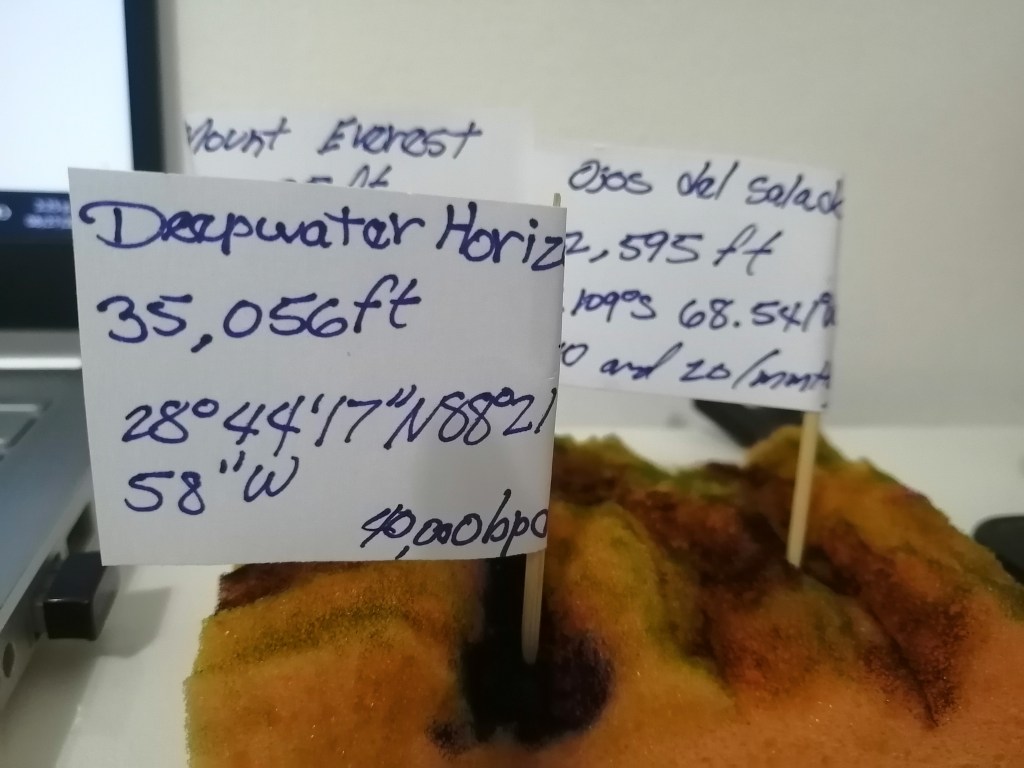 Mount Everest
Deepwater Horiz
35,056ft
28°44'17"N88°21
58"W
40,000bpd
Ojos del Salado
2,595 ft
.109°S 68.541°W
and 20/